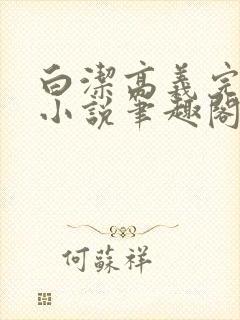 白潔高義完
小說筆趣閣
何蘇祥